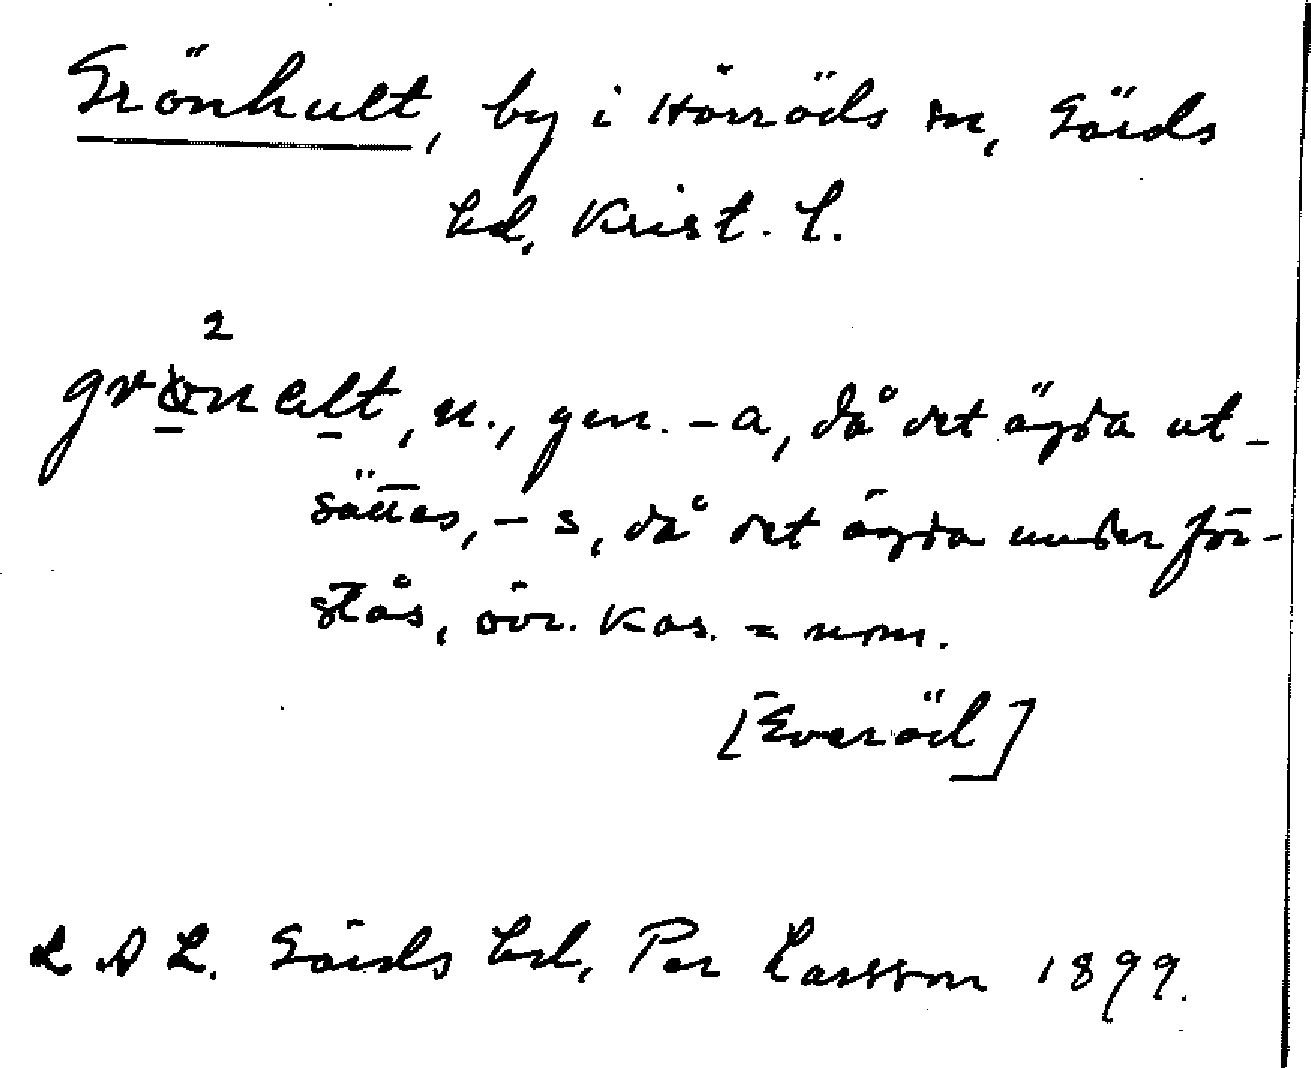 Grönhult, by i Hörröds sn, Gärds
hd, Krist. l.
2
grønalt, n., gen. -a, då det ägda ut-
sättes, -s, då det ägda underför-
stås, övr. kas. = nom.
[Everöd]
L A L. Gärds hd, Per Larsson 1899.